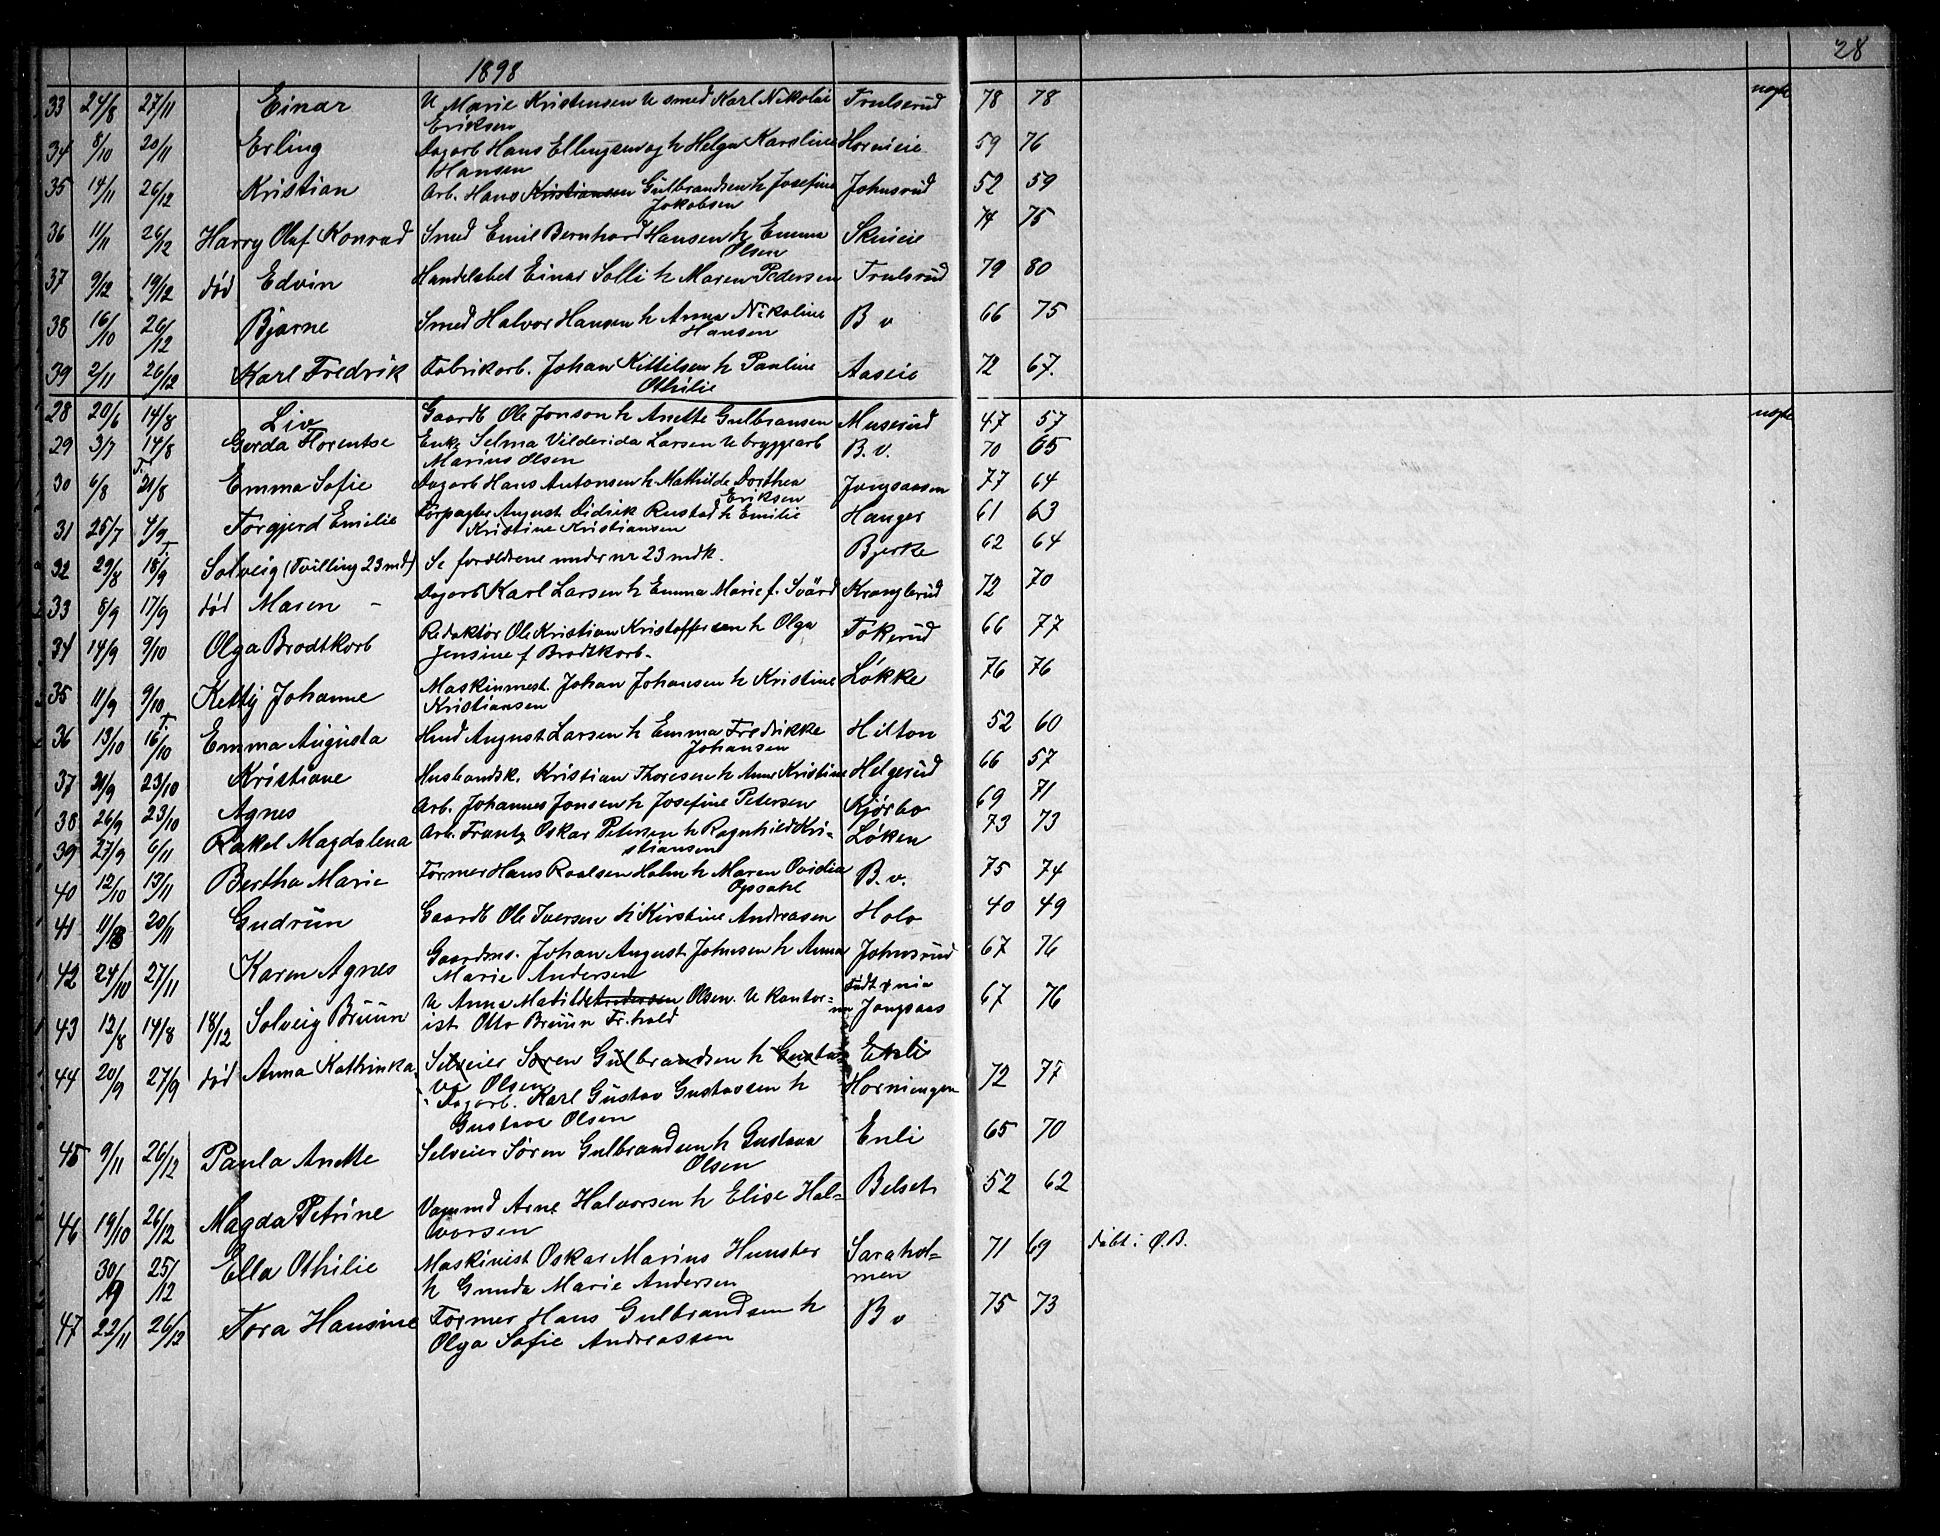 28
1898
33 24/8 27/11 Einar U Marie Kristensen u smed Karl Nikolai Trulserud 78 78
Eriksen
34 8/10 20/11 Erling Dagarb Hans Ellingsen og h Helga Karoline Hornieie 59 76
Hansen
35 14/11 26/12 Kristian Arb. Hans Kristiansen Gulbrandsen h Josefine Johnsrud 52 59
Jakobsen
36 11/11 26/12 Harry Olaf Konrad Smed Emil Bernhard Hansen h Emma Skuieie 74 75
Olsen
37 9/12 19/12 død Edvin Handelsbet Einar Solli h Maren Pedersen Trulsrud 79 80
38 16/10 26/12 Bjarne Smed Halvor Hansen h Anna Nikoline B v 66 75
Hansen
39 2/11 26/12 Karl Fredrik Fabrikarb. Johan Kittilsen h Pauline Aaseie 72 67.
Othilie
28 20/6 14/8 Liv Gaardb Ole Jonson h Anette Gulbransen Muserud 47 57
29 3/7 14/8 Gerda Florentse Enke Selma Vilderida Larsen u bryggearb B. v. 70 65
Marius Olsen
30 6/8 21/8 Emma Sofie Dagarb Hans Antonsen h Mathilde Dorthea Jongsaasen 77 64
Eriksen
31 25/7 4/9 Torgjerd Emilie Forpagter August Didrik Rustad h Emilie Hauger 61 63
Kristine Kristiansen
32 29/8 18/9 Solveig (Tvilling 23 md) Se forældrene under nr 23 mdk. Bjerke 62 64
33 8/9 17/9 død Maren - Dagarb Karl Larsen h Emma Marie f. Svärd Kranglerud 72 70
34 14/9 9/10 Olga Brodtkorb Redaktør Ole Kristian Kristoffersen h Olga Tokerud 66 77
Jensine f Brodtkorb.
35 11/9 9/10 Ketty Johanne Maskinmest. Johan Johansen h Kristine Løkke 76 76
Kristiansen
36 13/10 16/10 Emma Augusta Hmd August Larsen h Emma Fredrikke Hilton 52 60
Johansen
37 21/9 23/10 Kristiane Husbandsk. Kristian Thoresen h Anne Kristine Helgerud 66 57
38 26/9 23/10 Agnes Arb. Johannes Jonsen h Josefine Petersen Kjørbo 69 71
39 27/9 6/11 Rakel Magdalena Arb. Frantz Oskar Petersen h Ragnhild Kri- Løken 73 73
stiansen
40 12/10 13/11 Bertha Marie Former Hans Roalsen Holm h Maren Ovidia B. v. 75 74
Opsahl
41 11/10 20/11 Gudrun Gaardb Ole Iversen h Kirstine Andreasen Holo 40 49
42 24/10 27/11 Karen Agnes Gaardms. Johan August Johnsen h Anna Johnsrud 67 76
Marie Andersen
43 12/8 14/8 18/12 Solveig Bruun U Anna Matilde Andersen Olsen. U kontor= Jongsaas 67 76
ist Otto Bruun Fr.hald
44 20/9 27/9 død Anna Kathinka Selveier Søren Gulbrandsen h Gusta= Enli
va Olsen
Dagarb. Karl Gustav Gustavsen h Horningen 72 77
Gustava Olsen
45 9/11 26/12 Paula Anette Selveier Søren Gulbrandsen h Gustava Enli 65 70
Olsen
46 19/10 26/12 Magda Petrine Vognmd Arne Halvorsen h Elise Hal= Belset 52 62
vorsen
30/9 25/12 Ella Othilie Maskinist Oskar Marius Hunster Sarahol= 71 69 døbt i Ø.B.
h Gunda Marie Andersen men
47 22/11 26/12 Tora Hansine Former Hans Gulbrandsen h B v 75 73
Olga Sofie Andreassen